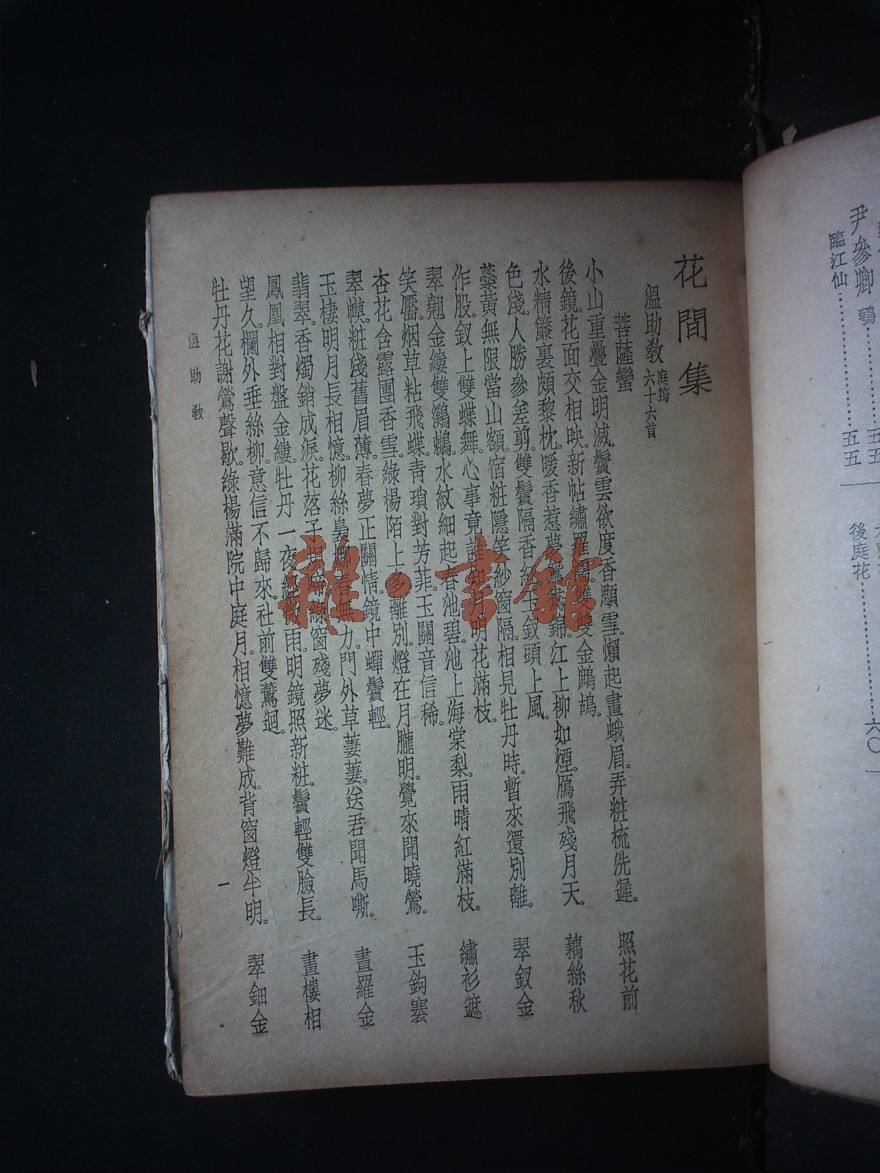 尹參卿 鶚
臨江仙……五五
五五
後庭花……六〇
花間集
溫助教 庭筠 六十六首
菩薩蠻
小山重疊金明滅。鬢雲欲度香顋雪。懶起畫蛾眉。弄粧梳洗遲。 照花前
後鏡。花面交相映。新帖繡羅襦。雙雙金鷓鴣。
水精簾裏頗黎枕。暖香惹夢鴛鴦錦。江上柳如煙。鴈飛殘月天。 藕絲秋
色淺。人勝參差剪。雙鬢隔香紅。玉釵頭上風。
蘂黃無限當山額。宿粧隱笑紗窗隔。相見牡丹時。暫來還別離。 翠釵金
作股。釵上雙蝶舞。心事竟誰知。月明花滿枝。
翠翹金縷雙鸂鶒。水紋細起春池碧。池上海棠梨。雨晴紅滿枝。 繡衫遮
笑靨。烟草粘飛蝶。青瑣對芳菲。玉關音信稀。
杏花含露團香雪。綠楊陌上多離別。燈在月朧明。覺來聞曉鶯。 玉鉤褰
翠幙。粧淺舊眉薄。春夢正關情。鏡中蟬鬢輕。
玉樓明月長相憶。柳絲裊娜春無力。門外草萋萋。送君聞馬嘶。 畫羅金
翡翠。香燭銷成淚。花落子規啼。綠窗殘夢迷。
鳳凰相對盤金縷。牡丹一夜經微雨。明鏡照新粧。鬢輕雙臉長。 畫樓相
望久。欄外垂絲柳。意信不歸來。社前雙鷰迴。
牡丹花謝鶯聲歇。綠楊滿院中庭月。相憶夢難成。背窗燈半明。 翠鈿金
溫助教
一
雜·書館